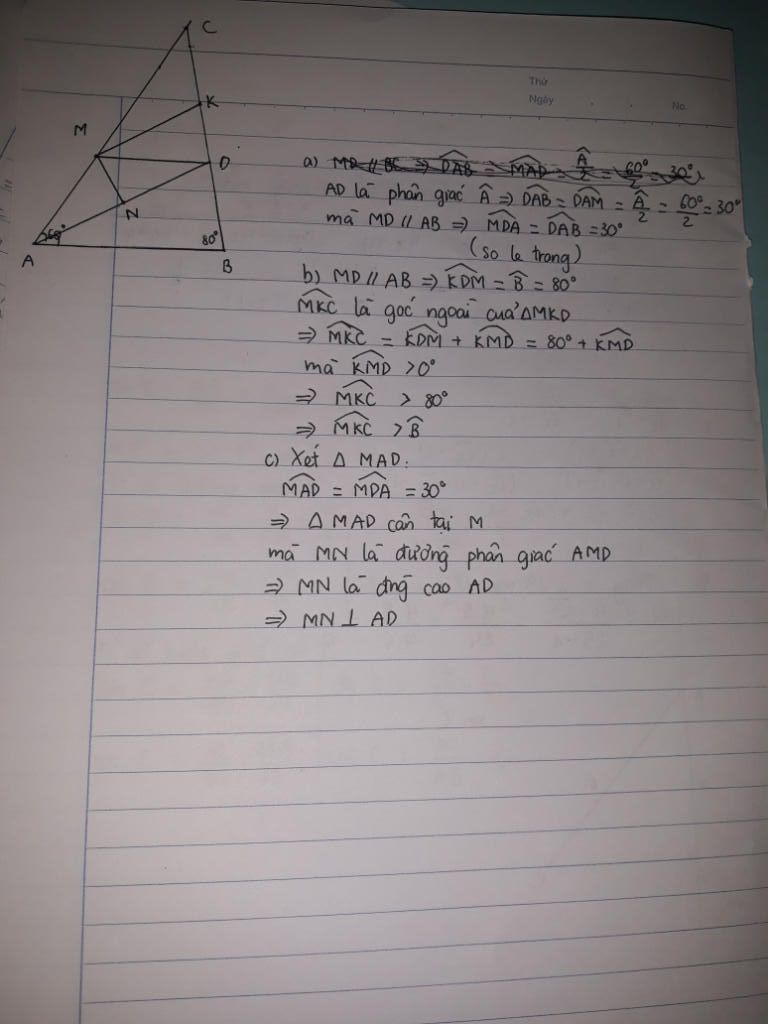 C
K
M
D
N
60°
80°
A
B
Thứ
Ngày
No.
a) MD // BC ⇒ DAB = MAD = Â/2 = 60°/2 = 30°
AD là phân giác Â ⇒ DAB = DAM = Â/2 = 60°/2 = 30°
mà MD // AB ⇒ MDA = DAB = 30°
(so le trong)
b) MD // AB ⇒ KDM = B̂ = 80°
MKC là góc ngoài của ΔMKD
⇒ MKC = KDM + KMD = 80° + KMD
mà KMD > 0°
⇒ MKC > 80°
⇒ MKC > B̂
c) Xét Δ MAD:
MAD = MDA = 30°
⇒ Δ MAD cân tại M
mà MN là đường phân giác AMD
⇒ MN là đng cao AD
⇒ MN ⊥ AD